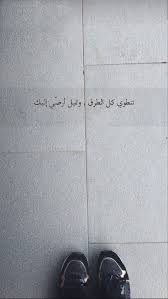 تنطوي كل الطرق ، وتبقى أرضي إليك